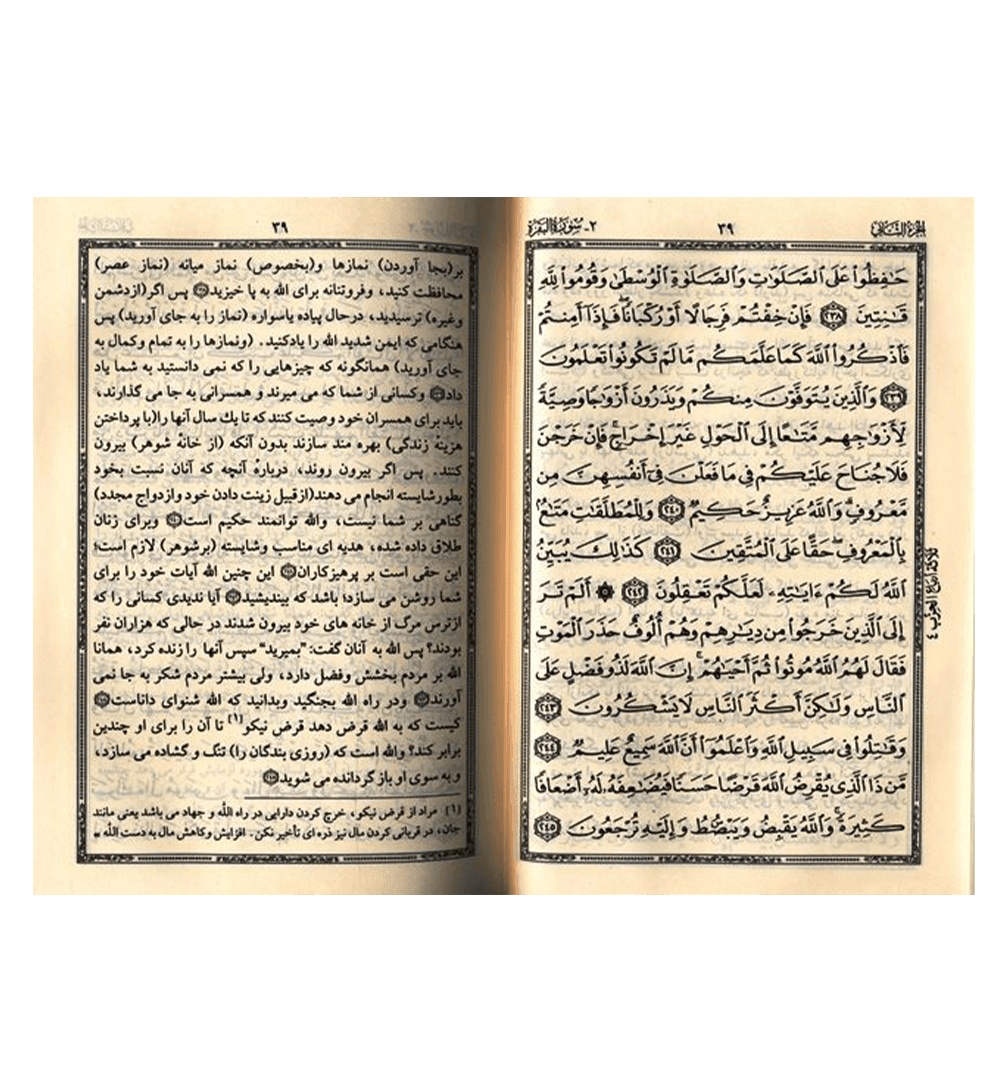 الجزء الثاني
٣٩
٢- سورة البقرة
حَٰفِظُوا۟ عَلَى ٱلصَّلَوَٰتِ وَٱلصَّلَوٰةِ ٱلْوُسْطَىٰ وَقُومُوا۟ لِلَّهِ
قَٰنِتِينَ ٢٣٨ فَإِنْ خِفْتُمْ فَرِجَالًا أَوْ رُكْبَانًا ۖ فَإِذَآ أَمِنتُمْ
فَٱذْكُرُوا۟ ٱللَّهَ كَمَا عَلَّمَكُم مَّا لَمْ تَكُونُوا۟ تَعْلَمُونَ
٢٣٩ وَٱلَّذِينَ يُتَوَفَّوْنَ مِنكُمْ وَيَذَرُونَ أَزْوَٰجًا وَصِيَّةً
لِّأَزْوَٰجِهِم مَّتَٰعًا إِلَى ٱلْحَوْلِ غَيْرَ إِخْرَاجٍ ۚ فَإِنْ خَرَجْنَ
فَلَا جُنَاحَ عَلَيْكُمْ فِى مَا فَعَلْنَ فِىٓ أَنفُسِهِنَّ مِن
مَّعْرُوفٍ ۗ وَٱللَّهُ عَزِيزٌ حَكِيمٌ ٢٤٠ وَلِلْمُطَلَّقَٰتِ مَتَٰعٌۢ
بِٱلْمَعْرُوفِ ۖ حَقًّا عَلَى ٱلْمُتَّقِينَ ٢٤١ كَذَٰلِكَ يُبَيِّنُ
ٱللَّهُ لَكُمْ ءَايَٰتِهِۦ لَعَلَّكُمْ تَعْقِلُونَ ٢٤٢ ۞ أَلَمْ تَرَ
إِلَى ٱلَّذِينَ خَرَجُوا۟ مِن دِيَٰرِهِمْ وَهُمْ أُلُوفٌ حَذَرَ ٱلْمَوْتِ
فَقَالَ لَهُمُ ٱللَّهُ مُوتُوا۟ ثُمَّ أَحْيَٰهُمْ ۚ إِنَّ ٱللَّهَ لَذُو فَضْلٍ عَلَى
ٱلنَّاسِ وَلَٰكِنَّ أَكْثَرَ ٱلنَّاسِ لَا يَشْكُرُونَ ٢٤٣
وَقَٰتِلُوا۟ فِى سَبِيلِ ٱللَّهِ وَٱعْلَمُوٓا۟ أَنَّ ٱللَّهَ سَمِيعٌ عَلِيمٌ ٢٤٤
مَّن ذَا ٱلَّذِى يُقْرِضُ ٱللَّهَ قَرْضًا حَسَنًا فَيُضَٰعِفَهُۥ لَهُۥٓ أَضْعَافًا
كَثِيرَةً ۚ وَٱللَّهُ يَقْبِضُ وَيَبْصُۜطُ وَإِلَيْهِ تُرْجَعُونَ ٢٤٥
ثلاثة أرباع الحزب ٤
٣٩
بر(بجا آوردن) نمازها و(بخصوص) نماز میانه (نماز عصر)
محافظت کنید، وفروتنانه برای الله به پا خیزید پس اگر(ازدشمن
وغیره) ترسیدید، درحال پیاده یاسواره (نماز را به جای آورید) پس
هنگامی که ایمن شدید الله را یادکنید. (ونمازها را به تمام وکمال به
جای آورید) همانگونه که چیزهایی را که نمی دانستید به شما یاد
داد وکسانی از شما که می میرند و همسرانی به جا می گذارند،
باید برای همسران خود وصیت کنند که تا یك سال آنها را(با پرداختن
هزینهٔ زندگی) بهره مند سازند بدون آنکه (از خانهٔ شوهر) بیرون
کنند. پس اگر بیرون روند، دربارهٔ آنچه که آنان نسبت بخود
بطورشایسته انجام می دهند(ازقبیل زینت دادن خود وازدواج مجدد)
گناهی بر شما نیست، والله توانمند حکیم است وبرای زنان
طلاق داده شده، هدیه ای مناسب وشایسته (برشوهر) لازم است؛
این حقی است بر پرهیزکاران این چنین الله آیات خود را برای
شما روشن می سازد؛ باشد که بیندیشید آیا ندیدی کسانی را که
ازترس مرگ از خانه های خود بیرون شدند در حالی که هزاران نفر
بودند؟ پس الله به آنان گفت: "بمیرید" سپس آنها را زنده کرد، همانا
الله بر مردم بخشش وفضل دارد، ولی بیشتر مردم شکر به جا نمی
آورند ودر راه الله بجنگید وبدانید که الله شنوای داناست
کیست که به الله قرض دهد قرض نیکو[١] تا آن را برای او چندین
برابر کند؟ والله است که (روزی بندگان را) تنگ و گشاده می سازد،
و به سوی او باز گردانده می شوید
[١] مراد از قرض نیکو، خرج کردن دارایی در راه الله و جهاد می باشد یعنی مانند
جان، در قربانی کردن مال نیز ذره ای تأخیر نکن. افزایش وکاهش مال به دست الله